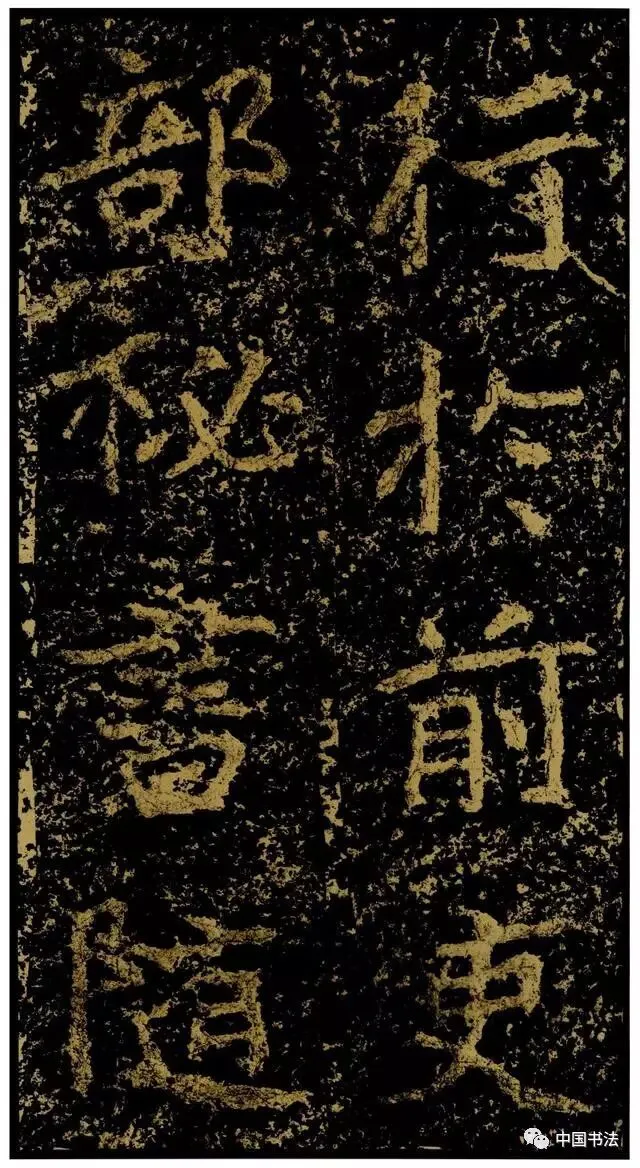 行於前吏
部秘書隨
中国书法